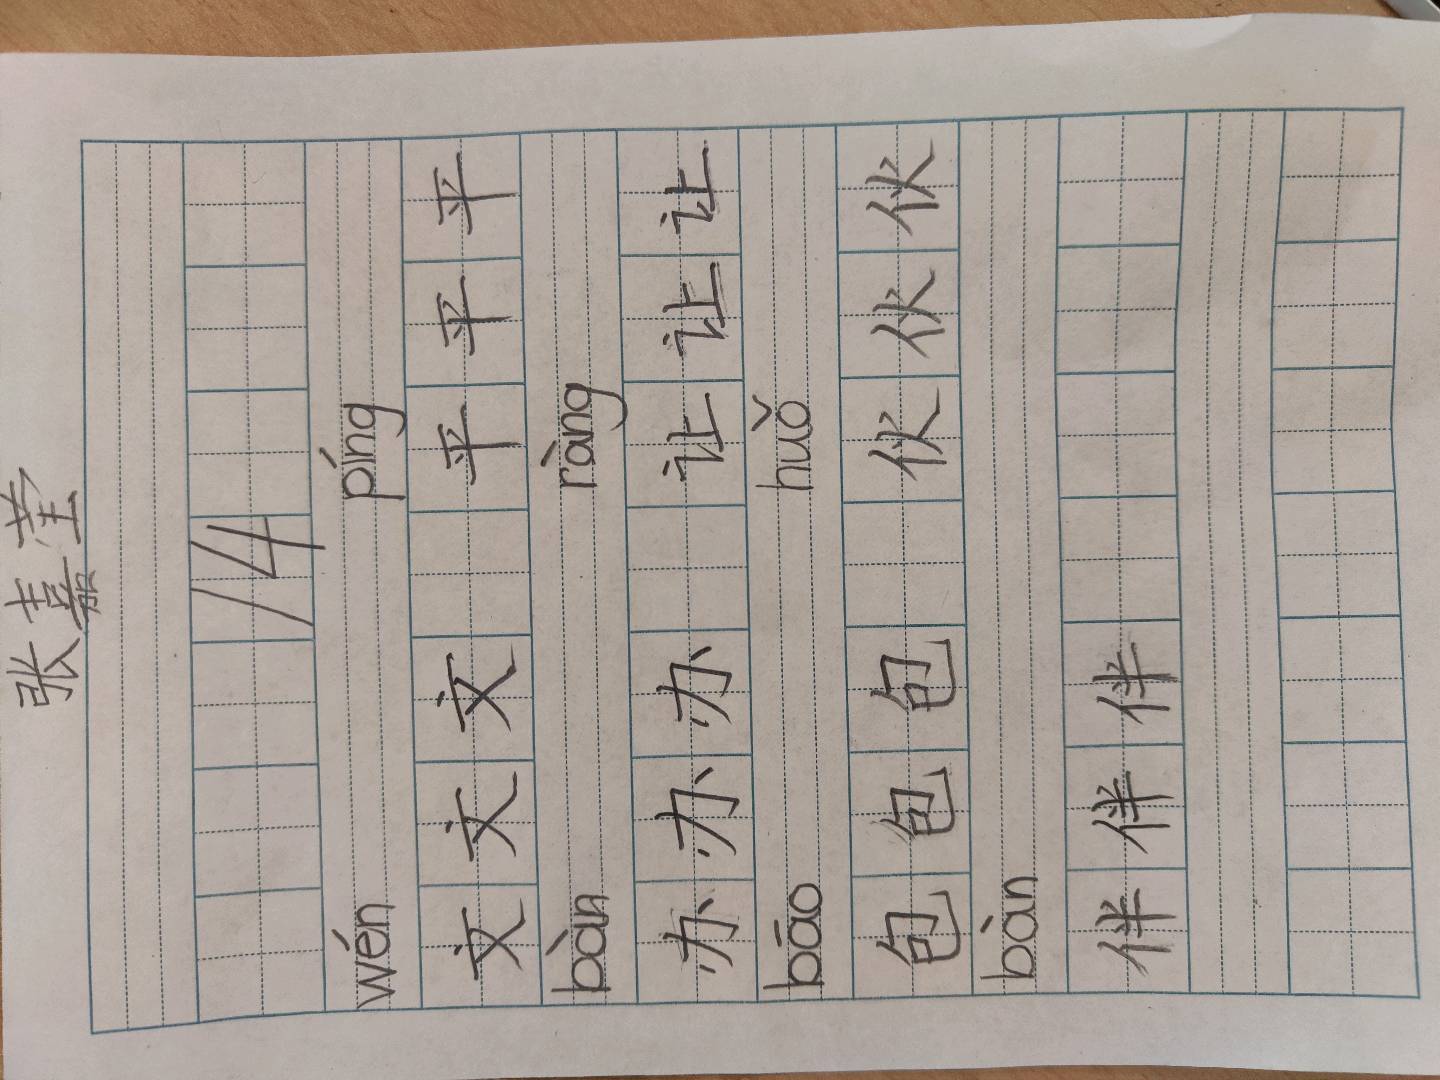 张嘉莹
14
wén píng
文文文 平平平
bàn ràng
办办办 让让让
bāo huǒ
包包包 伙伙伙
bàn
伴伴伴